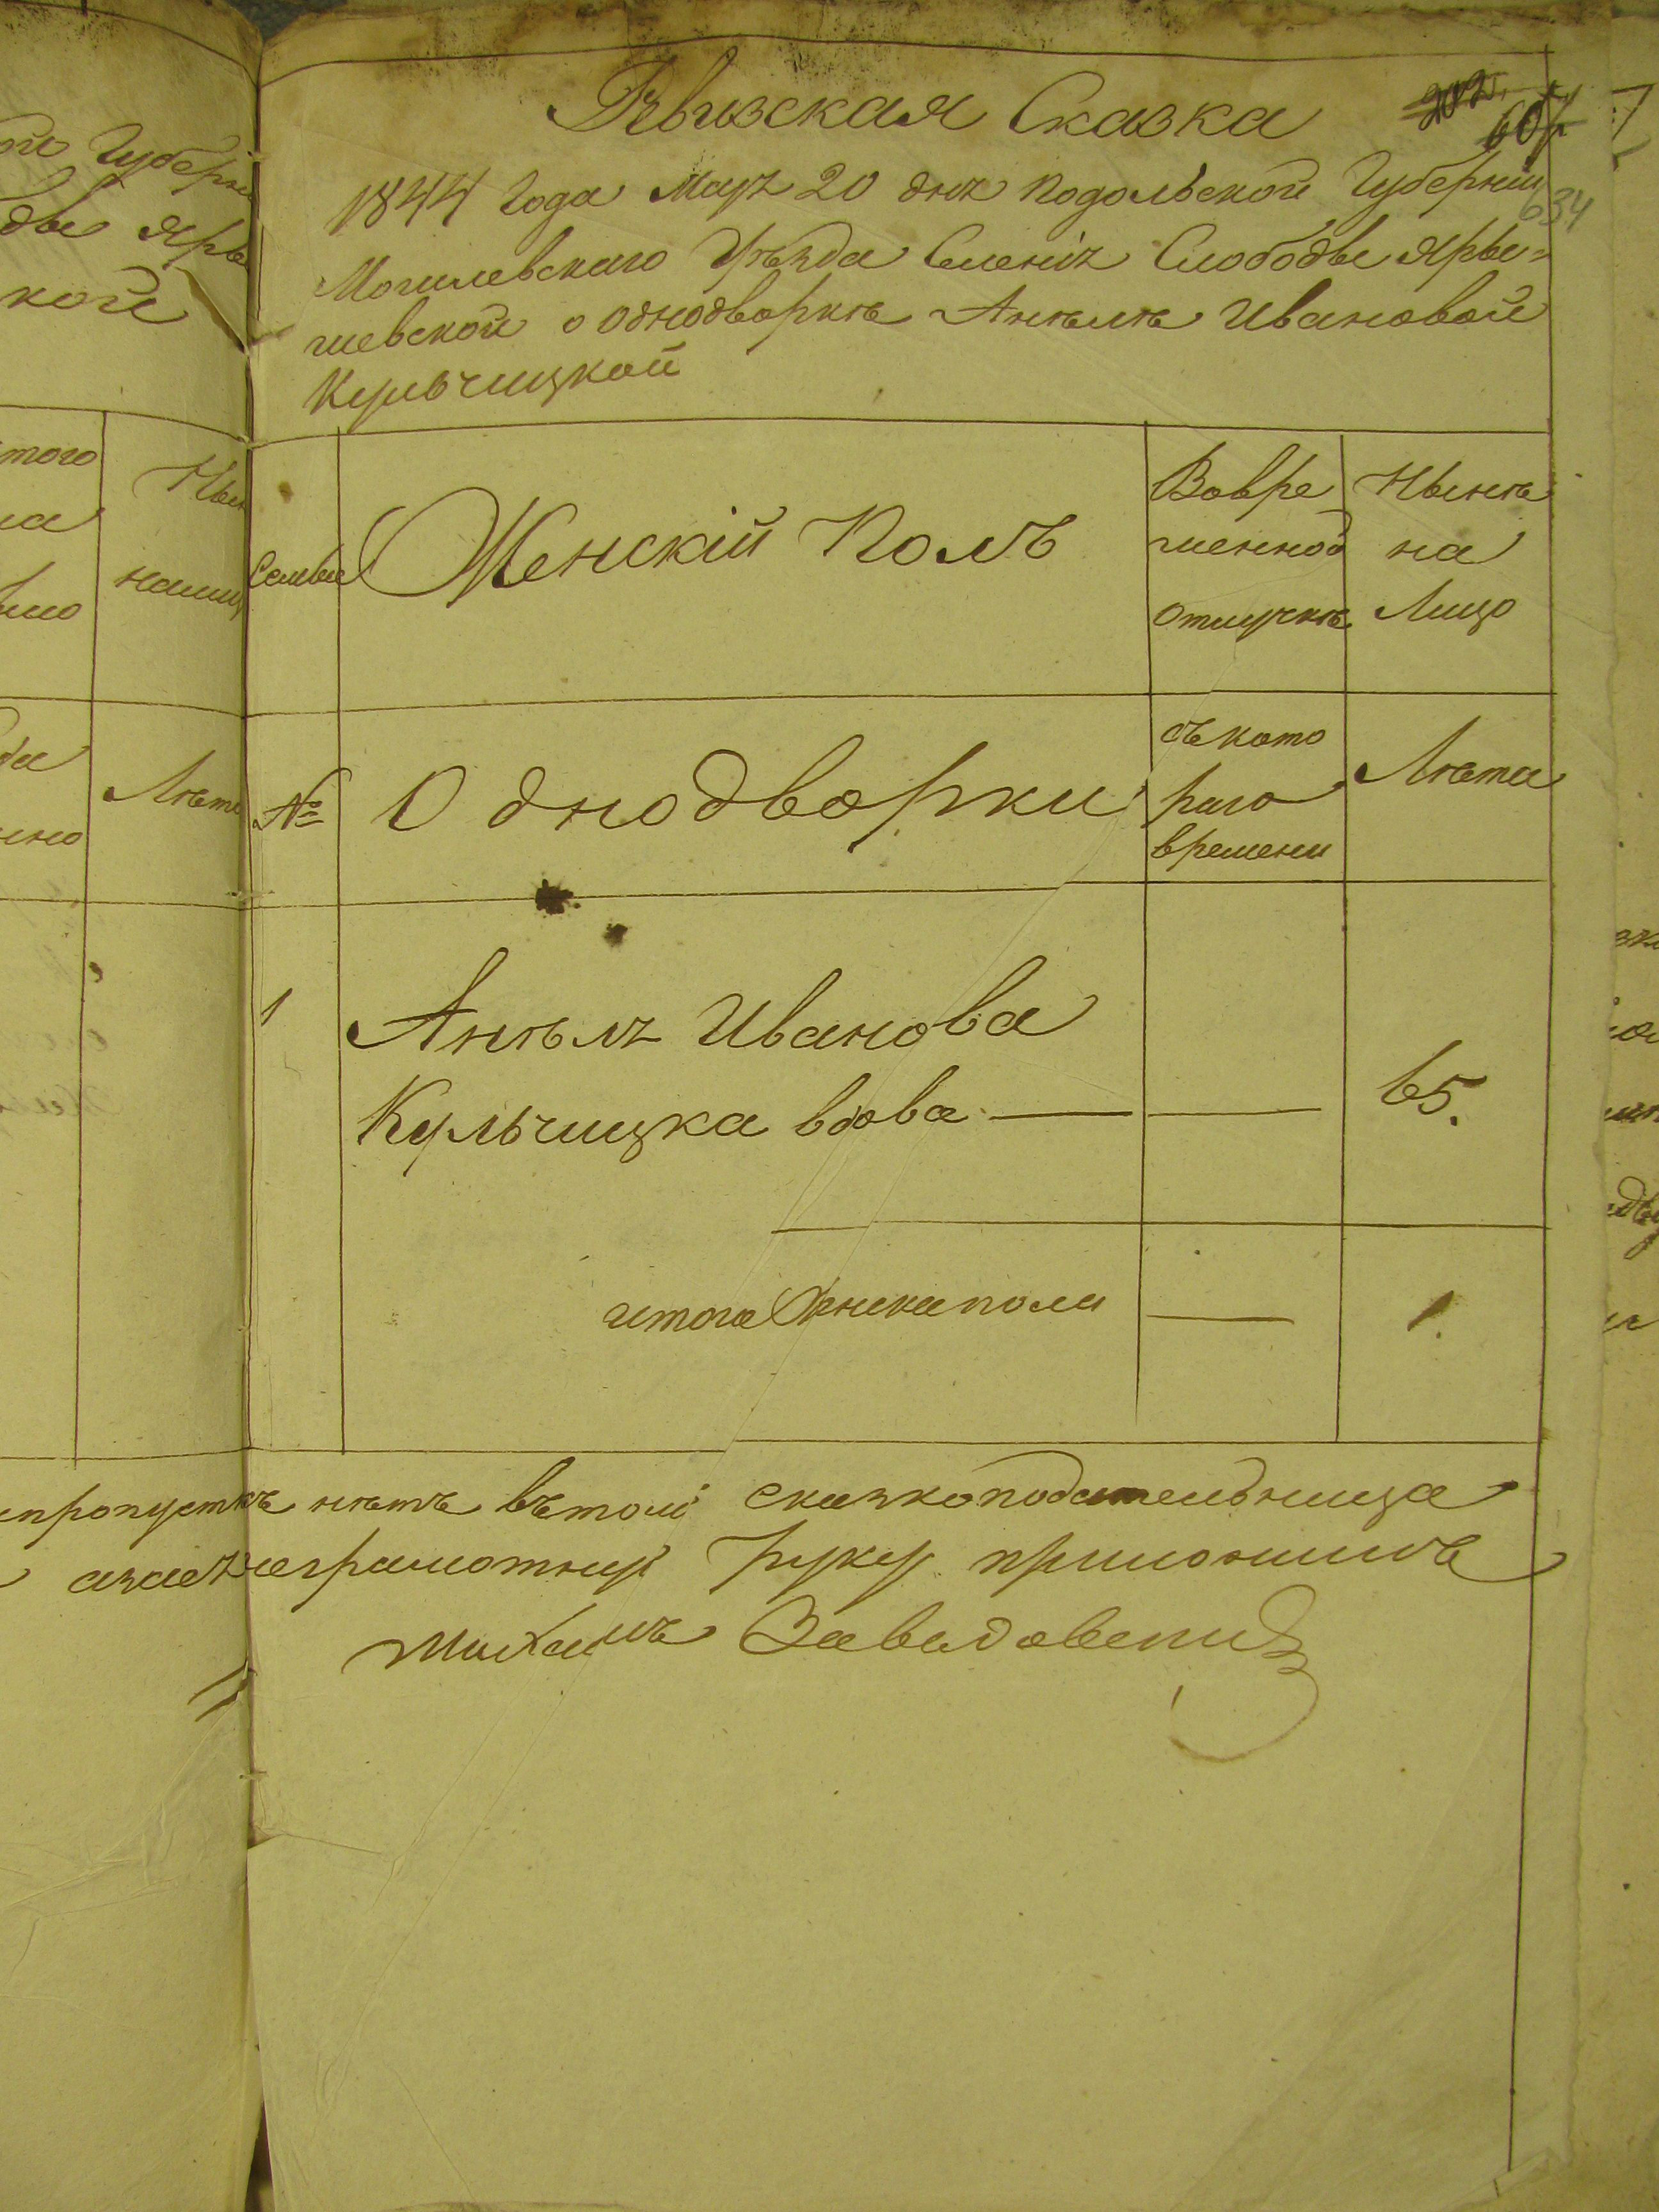 Ревизская Сказка
607
634
1844 Года Мая 20 дня Подольской Губернии
Могилевскаго Уѣзда Селенія Слободы Яры=
шевской о Однодворкѣ Анѣлѣ Ивановой
Кульчицкой
Семьи
Женскій Полъ
Вовре
менной
отлучкѣ
Нынѣ
на
Лицо
№
Однодворки
съ кото
раго
времени
Лѣта
1
Анѣля Иванова
Кульчицка вдова
65.
итого женска пола
1.
пропусткъ нѣтъ въ томъ сказкоподательница
неграмотную руку приложилъ
Михаилъ Завадовский